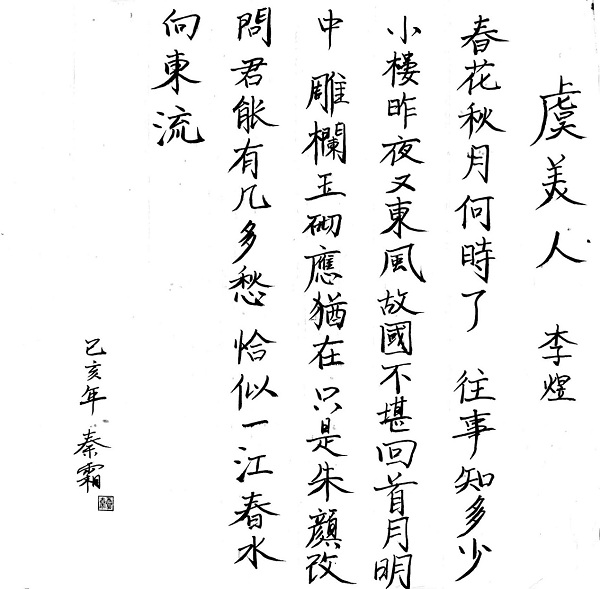 虞美人 李煜
春花秋月何時了 往事知多少
小樓昨夜又東風故國不堪回首月明
中 雕欄玉砌應猶在只是朱顔改
問君能有几多愁 恰似一江春水
向東流
己亥年 秦霜